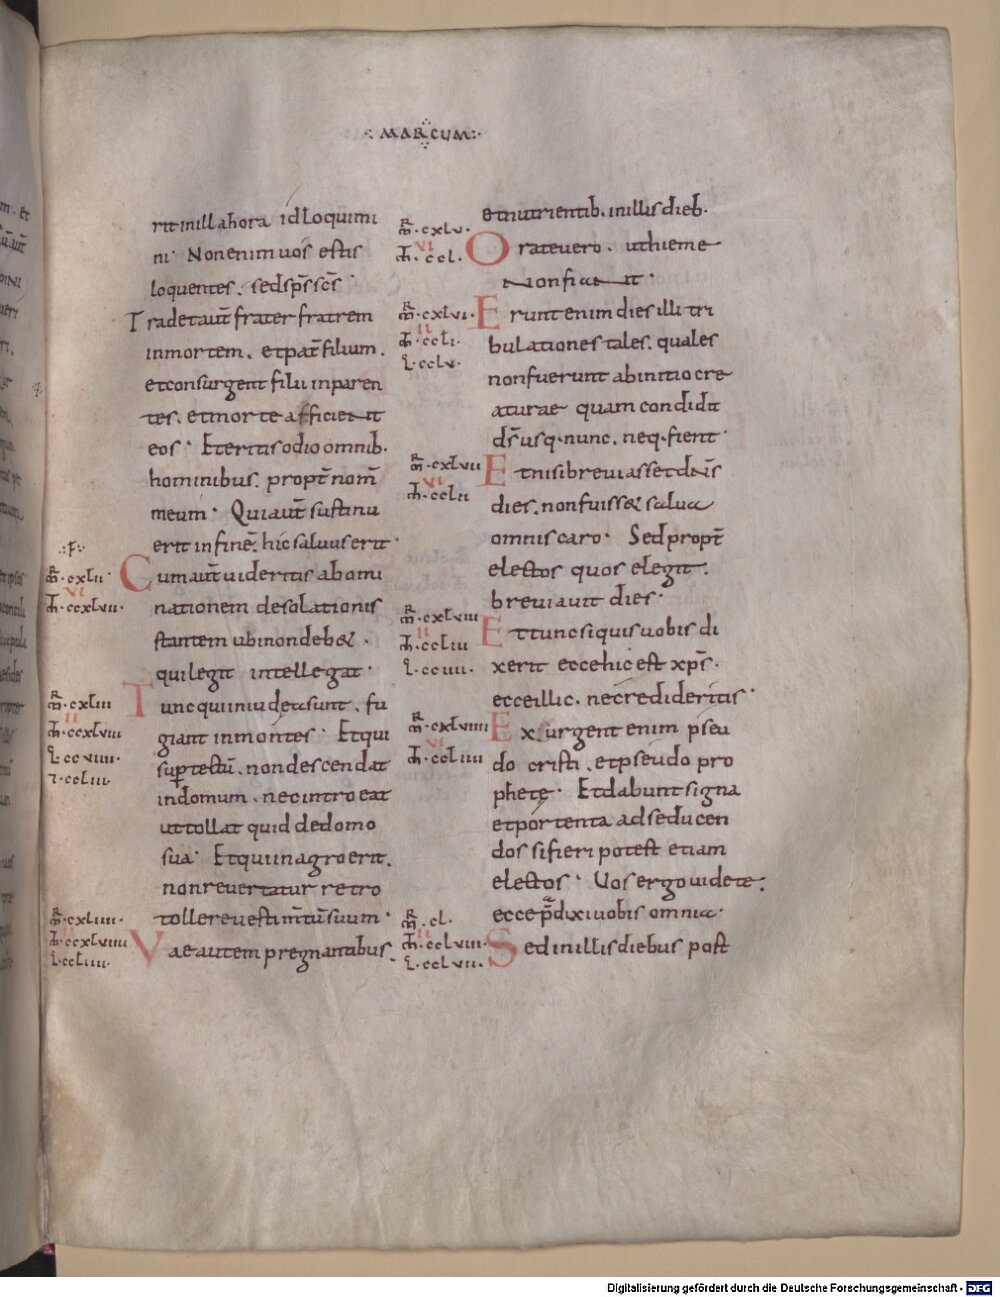 MARCUM
rit in illa hora id loquimi
ni· Non enim uos estis
loquentes. sed sp̄s sc̄s·
Tradet aut̄ frater fratrem
in mortem. et pat̄ filium.
et consurgent filii in paren
tes. et morte afficient
eos· Et eritis odio omnib.
hominibus. propt̄ nom̄
meum· Qui aut̄ sustinu
erit in finē. hic saluus erit·
·F·
m̄R·cxlii·
VI
ıoh·ccxlvii·
Cum aut̄ uideritis abomi
nationem desolationis
stantem ubi non debet.
qui legit intellegat·
m̄R·cxliii
II
m̄t·ccxlviii
L·ccviiii·
Tunc qui in iudea sunt. fu
giant in montes· Et qui
sup̄ tectū. non descendat
in domum. nec introeat
ut tollat quid de domo
sua· Et qui in agro erit.
non reuertatur retro
tollere uestim̄tū suum·
m̄R·cxliiii·
II
m̄t·ccxlviiii
Vae autem pregnantibus.
et nutrientib. in illis dieb.
m̄R·cxlv·
VI
m̄t·ccl·
Orate uero. ut hieme
non fiant·
m̄R·cxlvi·
II
m̄t·ccli·
L·cclv·
Erunt enim dies illi tri
bulationes tales. quales
non fuerunt ab initio cre
aturae quam condidit
ds̄ usq· nunc. neq· fient·
m̄R·cxlvii
VI
m̄t·cclii
Et nisi breuiasset dn̄s
dies. non fuisset salua
omnis caro· Sed propt̄
electos quos elegit.
breuiauit dies·
m̄R·cxlviii
II
m̄t·ccliii
Et tunc si quis uobis di
xerit ecce hic est xp̄s.
ecce illic. ne credideritis·
m̄R·cxlviiii
VI
m̄t·ccliiii
Exurgent enim pseu
do cristi. et pseudo pro
phetę· Et dabunt signa
et portenta ad seducen
dos si fieri potest etiam
electos· Uos ergo uidete.
ecce p̄dixi uobis omnia·
m̄R·cl·
II
m̄t·cclviii·
L·cclvii·
Sed in illis diebus post
Digitalisierung gefördert durch die Deutsche Forschungsgemeinschaft - DFG